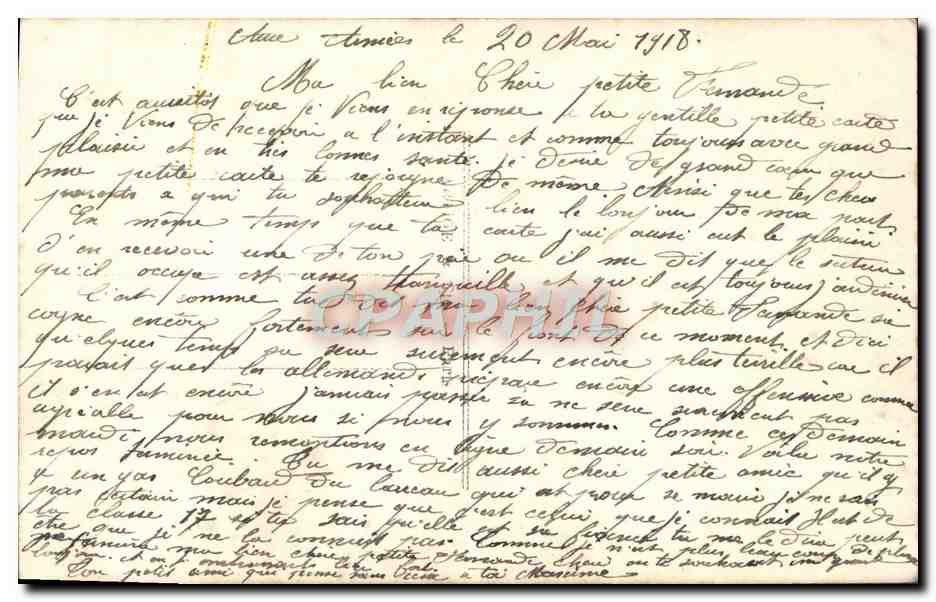 Aux Armées le 20 Mai 1918.
Ma bien Chère petite Fernande
C'est aussitôt que je viens en réponse a ta gentille petite carte
que je viens de recevoir a l'instant et comme toujours avec grand
plaisir et en très bonnes santé. Je désire de grand cœur que
ma petite carte te rejoigne de même Ainsi que tes chers
parents a qui tu souhaitera bien le bonjour de ma part
En même temps que ta carte j'ai aussi eut le plaisir
d'en recevoir une de ton père ou il me dit que le secteur
qu'il occupe est assez tranquille et qu'il est toujours
C'est comme tu dis ma bien chère petite Fernande sa
cogne encore fortement sur le front de ce moment, et d'ici
quelques temps sa sera surement encore plus terrible car il
parait que les allemands prépare encore une offensive comme
il s'en est encore jamais passé sa ne sera surement pas
agréable pour nous si nous y sommes. Comme ces demain
mardi nous remontons en ligne demain soir. Voila notre
repos terminée. Tu me dis aussi chère petite amie qu'il y
a un gas du qui est pour se marier je ne sais
pas mais je pense que c'est celui que je connait Il est de
la classe 17 si tu sais qu'elle est sa tu me le dira peut
être que je ne la connait pas. Comme je n'est plus beaucoup de place
je termine ma bien chère petite Fernande en te souhaitant un grand
bonjour
Ton petit ami qui pense sans cesse a toi Maxime
CPARAMA